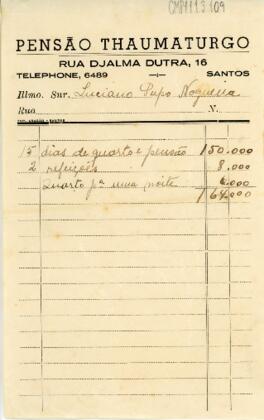 CMP1.1.3.109
PENSÃO THAUMATURGO
RUA DJALMA DUTRA, 16
TELEPHONE, 6489 SANTOS
Illmo. Snr. Luciano Pupo Nogueira
Rua N.
15 dias de quarto e pensão 150.000
2 refeições 8.000
Quarto pª uma noite 6.000
164.000